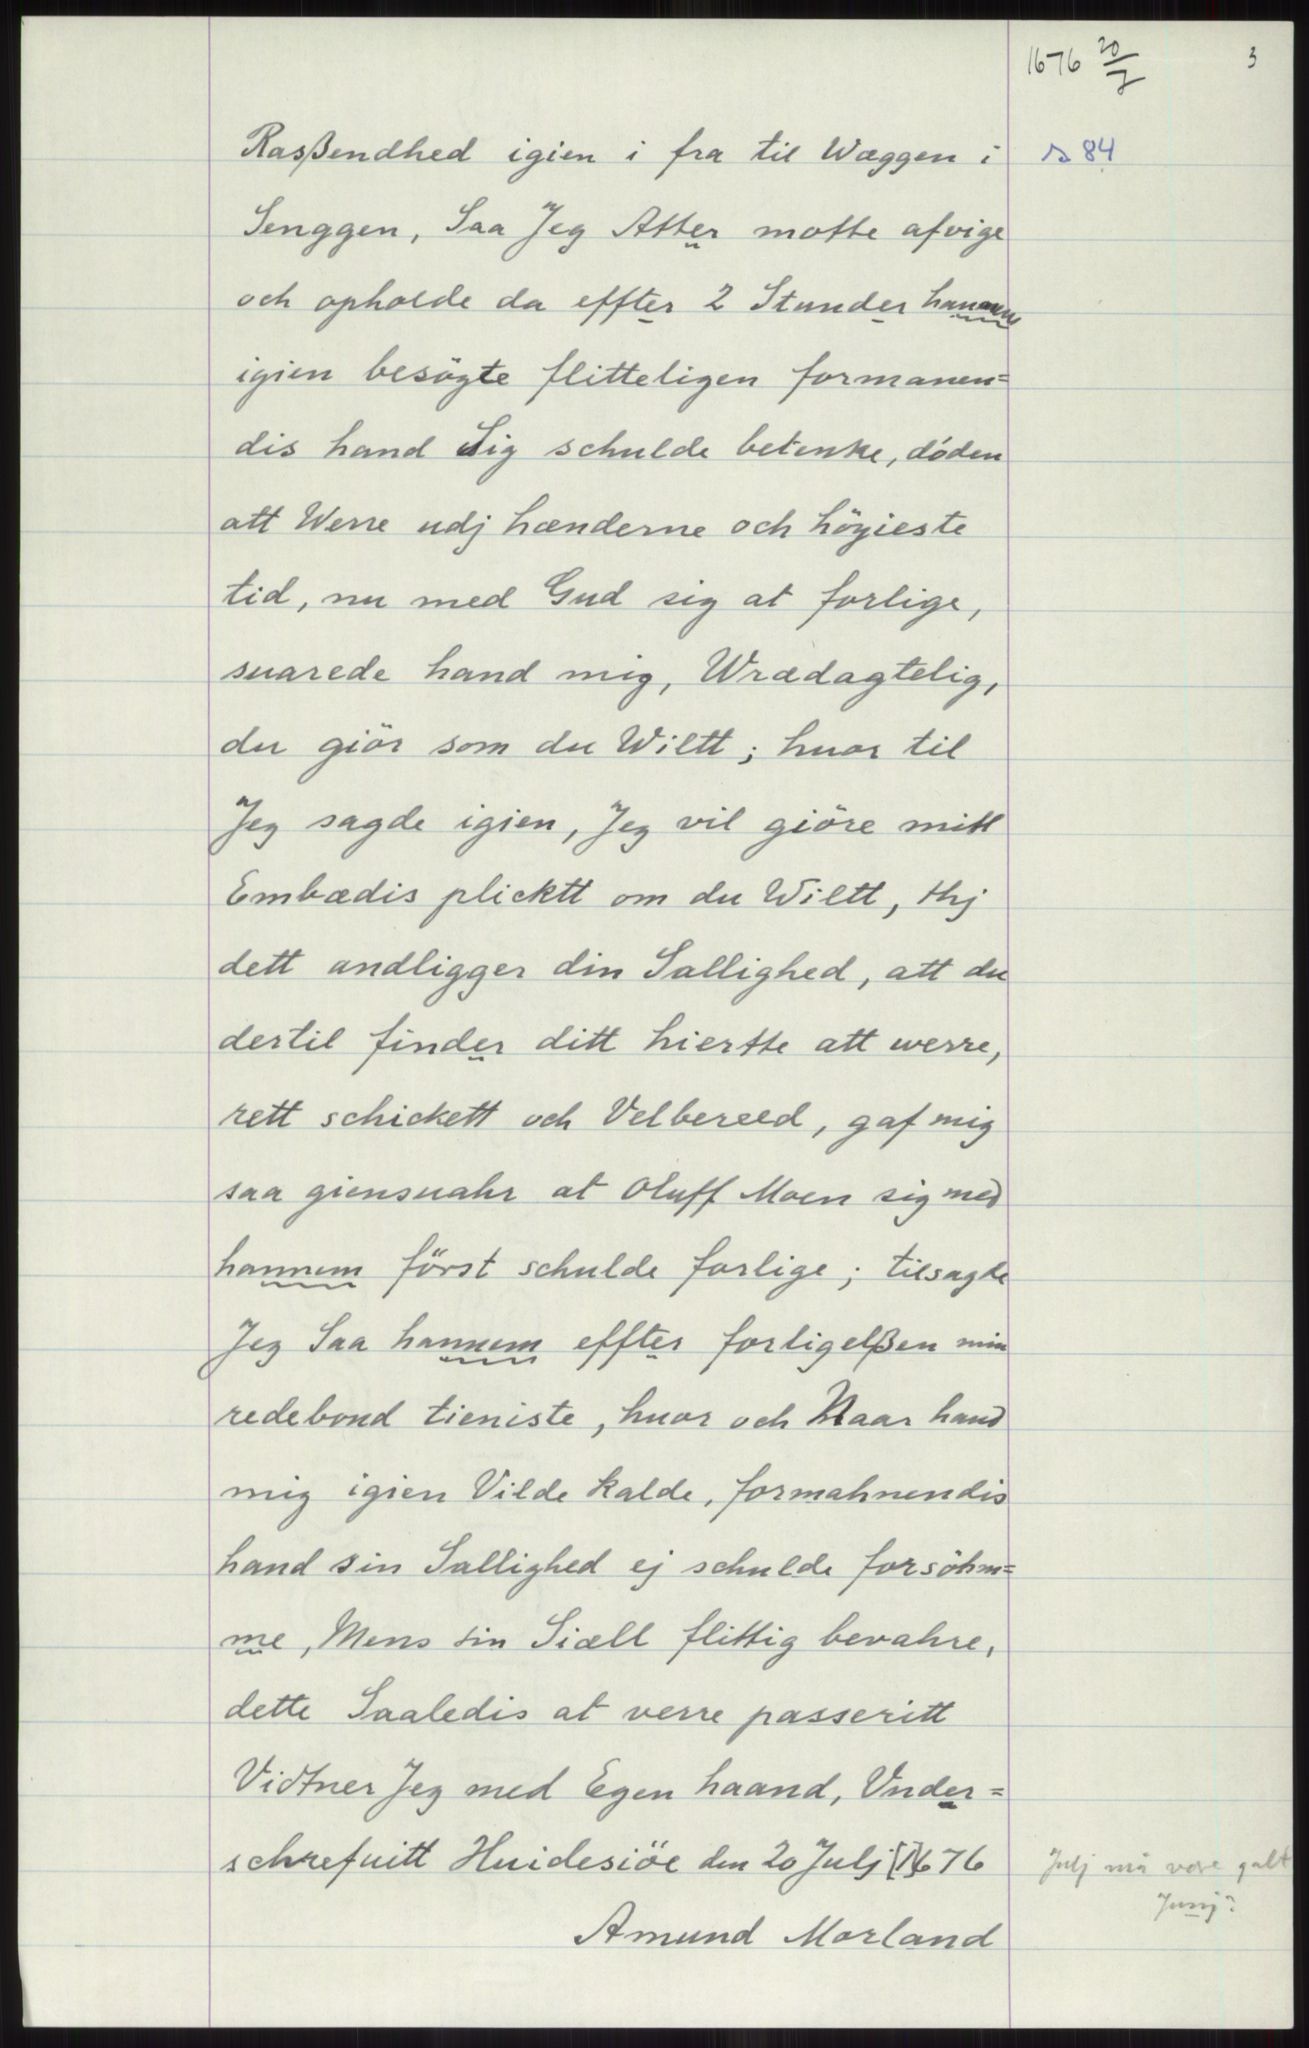 1676 20/7 3
Rasßendhed igien i fra til Wæggen i s 84
Senggen, Saa Jeg Atter motte afvige
och opholde da effter 2 Stunder hannem
igien besögte flitteligen formanen=
dis hand Sig schulde betenke, döden
att Werre udj hænderne och höyieste
tid, nu med Gud sig at forlige,
suarede hand mig, Wrædagtelig,
du giör som du Wiltt; huor til
Jeg sagde igien, Jeg vil giöre mitt
Embædis plicktt om du Wiltt, thj
dett andligger din Sallighed, att du
dertil finder ditt hiertte att werre,
rett schickett och Velbereed, gaf mig
saa giensuahr at Oluff Moen sig med
hannem först schulde forlige; tilsagde
Jeg Saa hannem effter forligelßen min
redebond tieniste, huor och Naar hand
mig igien Vilde kalde, formahnendis
hand sin Sallighed ej schulde forsöhm=
me, Mens sin Siæll flittig bevahre,
dette Saaledis at verre passeritt
Vidtner Jeg med Egen haand, Vnder=
schrefuitt Huidesiöe den 20 Julj [1]676 Julj må være galt
Junj?
Amund Morland